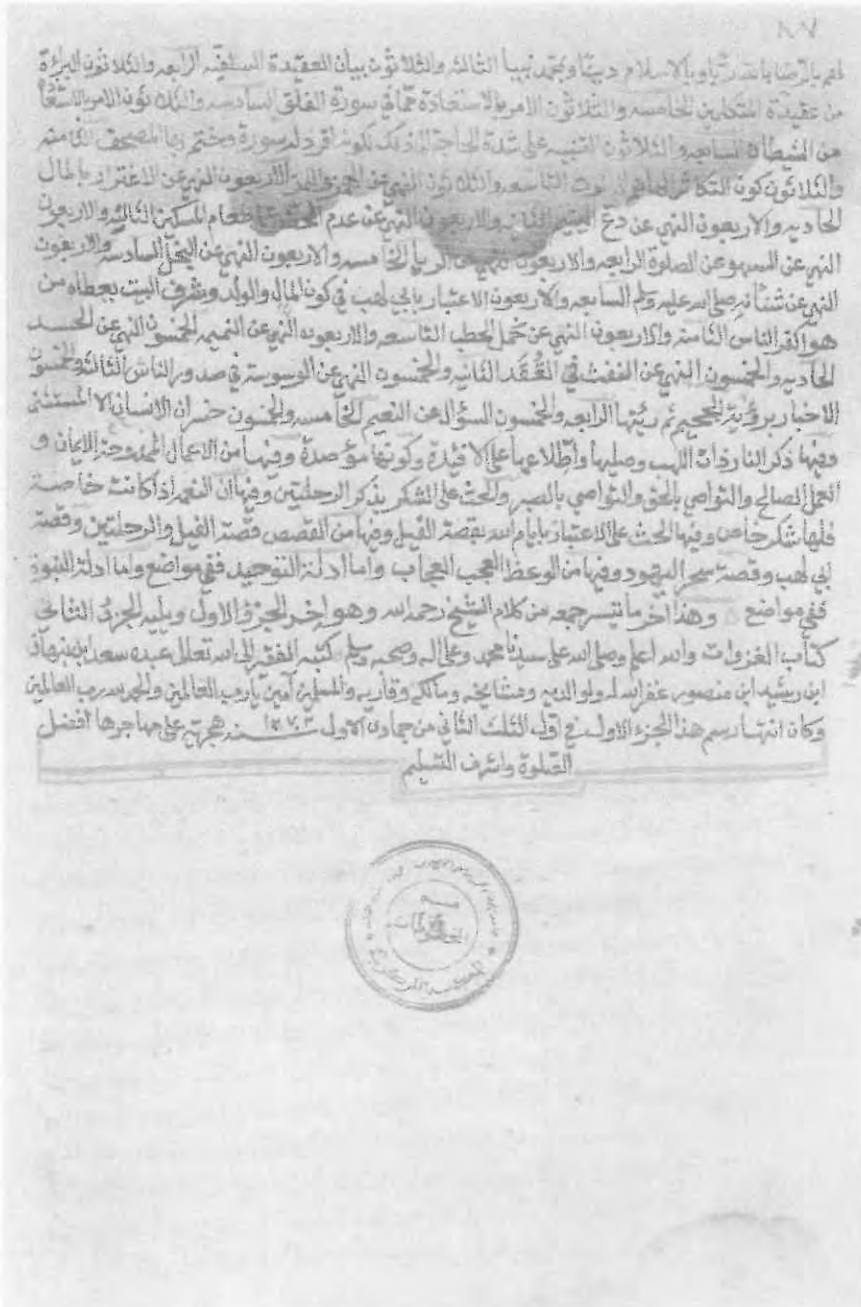 ٨٧
لهم بالرضا بالله ربا وبالاسلام دينا وبمحمد نبيا الثالثه والثلاثون بيان العقيدة السلفيه الرابعه والثلاثون البراءة
من عقيدة المتكلمين الخامسه والثلاثون الامر بالاستعاذة مما في سورة الفلق السادسه والثلاثون الامر بالاستعاذة
من الشيطان السابعه والثلاثون التنبيه على شدة الحاجة الى ذلك لكونه افرد له سورة وختم بها المصحف الثامنه
والثلاثون كون التكاثر الهاهم الى الموت التاسعه والثلاثون النهي عن الهمز واللمز الاربعون النهي عن الاغترار بالمال
الحاديه والاربعون النهي عن دع اليتيم الثانيه والاربعون النهي عن عدم الحض على طعام المسكين الثالثه والاربعون
النهي عن السهو عن الصلوة الرابعه والاربعون النهي عن الريا الخامسه والاربعون النهي عن البخل السادسه والاربعون
النهي عن شنآنه صلى الله عليه وسلم السابعه والاربعون الاعتبار بابي لهب في كون المال والولد وشرف البيت يعطاه من
هو اكفر الناس الثامنه والاربعون النهي عن حمل الحطب التاسعه والاربعون النهي عن النميمه الخمسون النهي عن الحسد
الحاديه والخمسون النهي عن النفث في العقد الثانيه والخمسون النهي عن الوسوسة في صدور الناس الثالثة والخمسون
الاخبار برؤية الجحيم ثم رؤيتها الرابعه والخمسون السؤال عن النعيم الخامسه والخمسون خسران الانسان الا المستثنى
وفيها ذكر النار ذات اللهب وصليها واطلاعها على الافئدة وكونها مؤصدة وفيها من الاعمال الممدوحة الايمان و
العمل الصالح والتواصي بالحق والتواصي بالصبر والحث على الشكر بذكر الرحلتين وفيها ان النعم اذا كانت خاصة
فلها شكر خاص وفيها الحث على الاعتبار بايام الله بقصة الفيل وفيها من القصص قصة الفيل والرحلتين وقصة
ابي لهب وقصة سحر اليهود وفيها من الوعظ العجب العجاب واما ادلة التوحيد ففي مواضع واما ادلة النبوة
ففي مواضع وهذا آخر ما تيسر جمعه من كلام الشيخ رحمه الله وهو اخر الجزؤ الاول ويليه الجزؤ الثاني
كتاب الغزوات والله اعلم وصلى الله على سيدنا محمد وعلى اله وصحبه وسلم كتبه الفقير الى الله تعالى عبده سعد ابن نبهان
ابن رشيد ابن منصور غفر الله له ولوالديه ومشايخه ومالكه وقاريه والمسلمين آمين يا رب العالمين والحمد لله رب العالمين
وكان انتهاء رسم هذا الجزء الاول في اول الثلث الثاني من جمادى الاول سنة ١٢٧٣ هجرية على مهاجرها افضل
الصلوة واشرف التسليم
قسم
المخطوطات
المكتبة المركزية